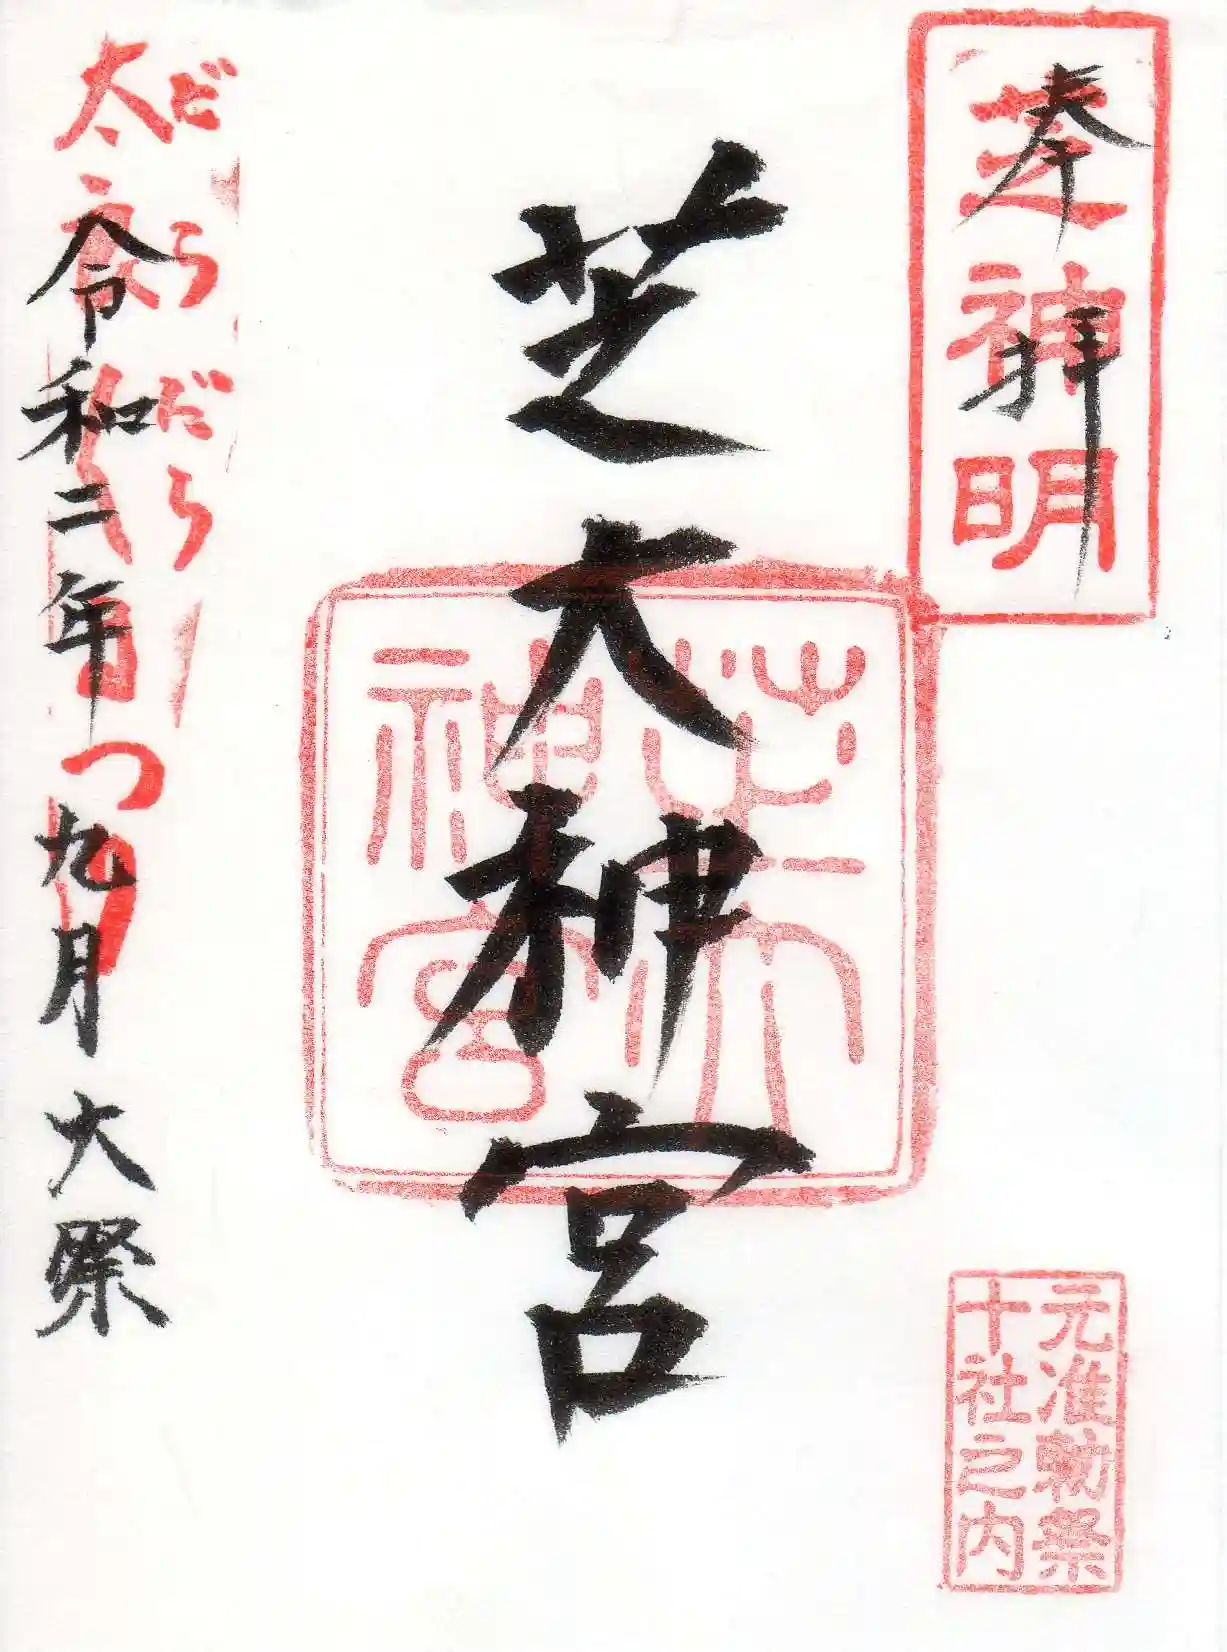 奉拝
芝神明
芝大神宮
芝大
神宮
元准勅祭
十社之内
だらだら
令和二年九月大祭